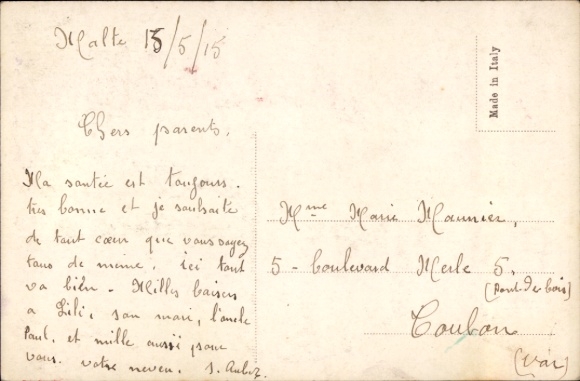 Malte 15/5/15
Made in Italy
Chers parents,
Ma santée est toujours
très bonne et je souhaite
de tout cœur que vous soyez
tous de meme. ici tout
va bien - Milles baisers
a Lili, son mari, l'oncle
Paul, et mille aussi pour
vous. votre neveu. J.
Mme Marie Maunier,
5 - boulevard Merle 5,
(Pont-de-bois)
Toulon
(Var)